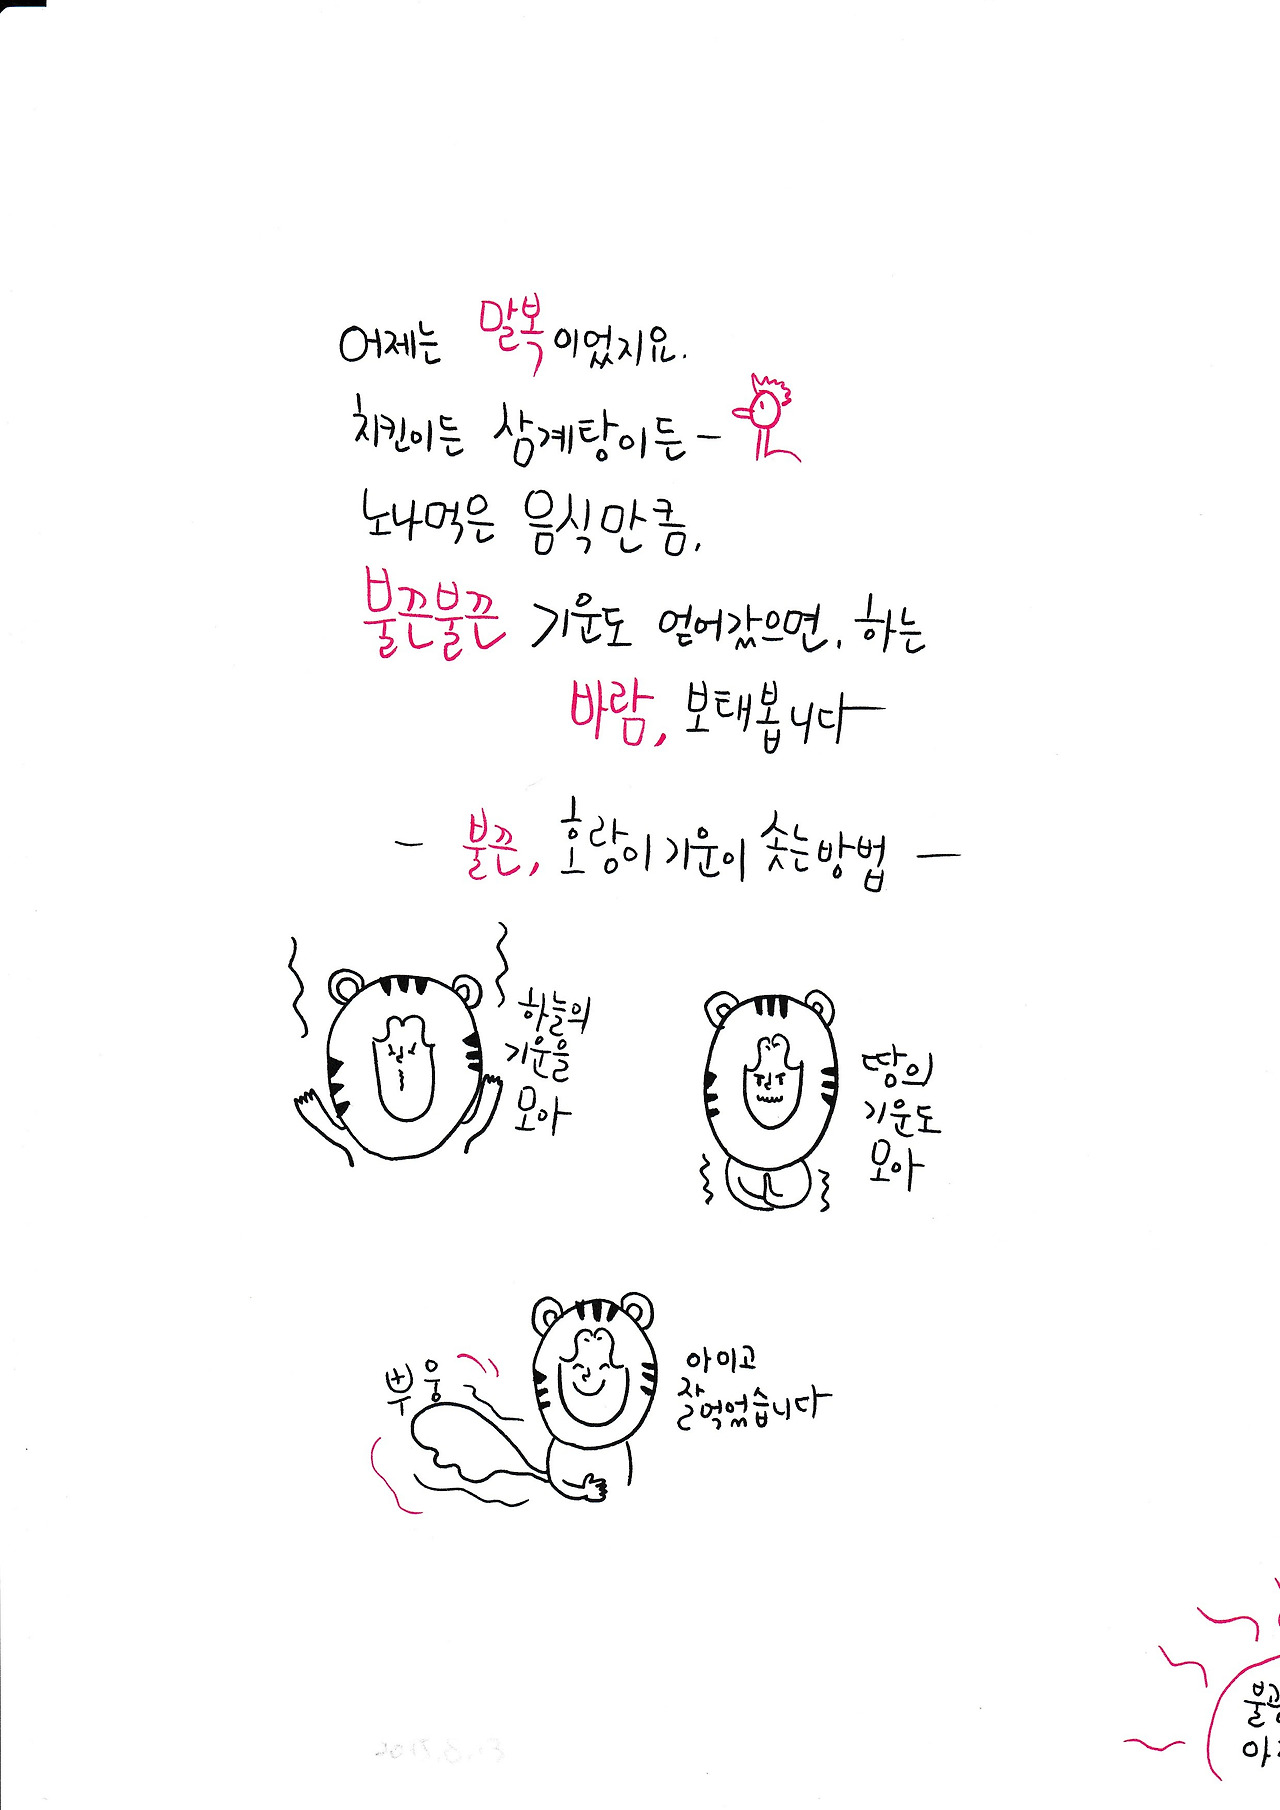 어제는 말복이었지요.
치킨이든 삼계탕이든 –
노나먹은 음식만큼,
불끈불끈 기운도 얻어갔으면, 하는
바람, 보태봅니다
– 불끈, 호랑이 기운이 솟는 방법 –
하늘의
기운을
모아
땅의
기운도
모아
뿌웅
아이고
잘 먹었습니다